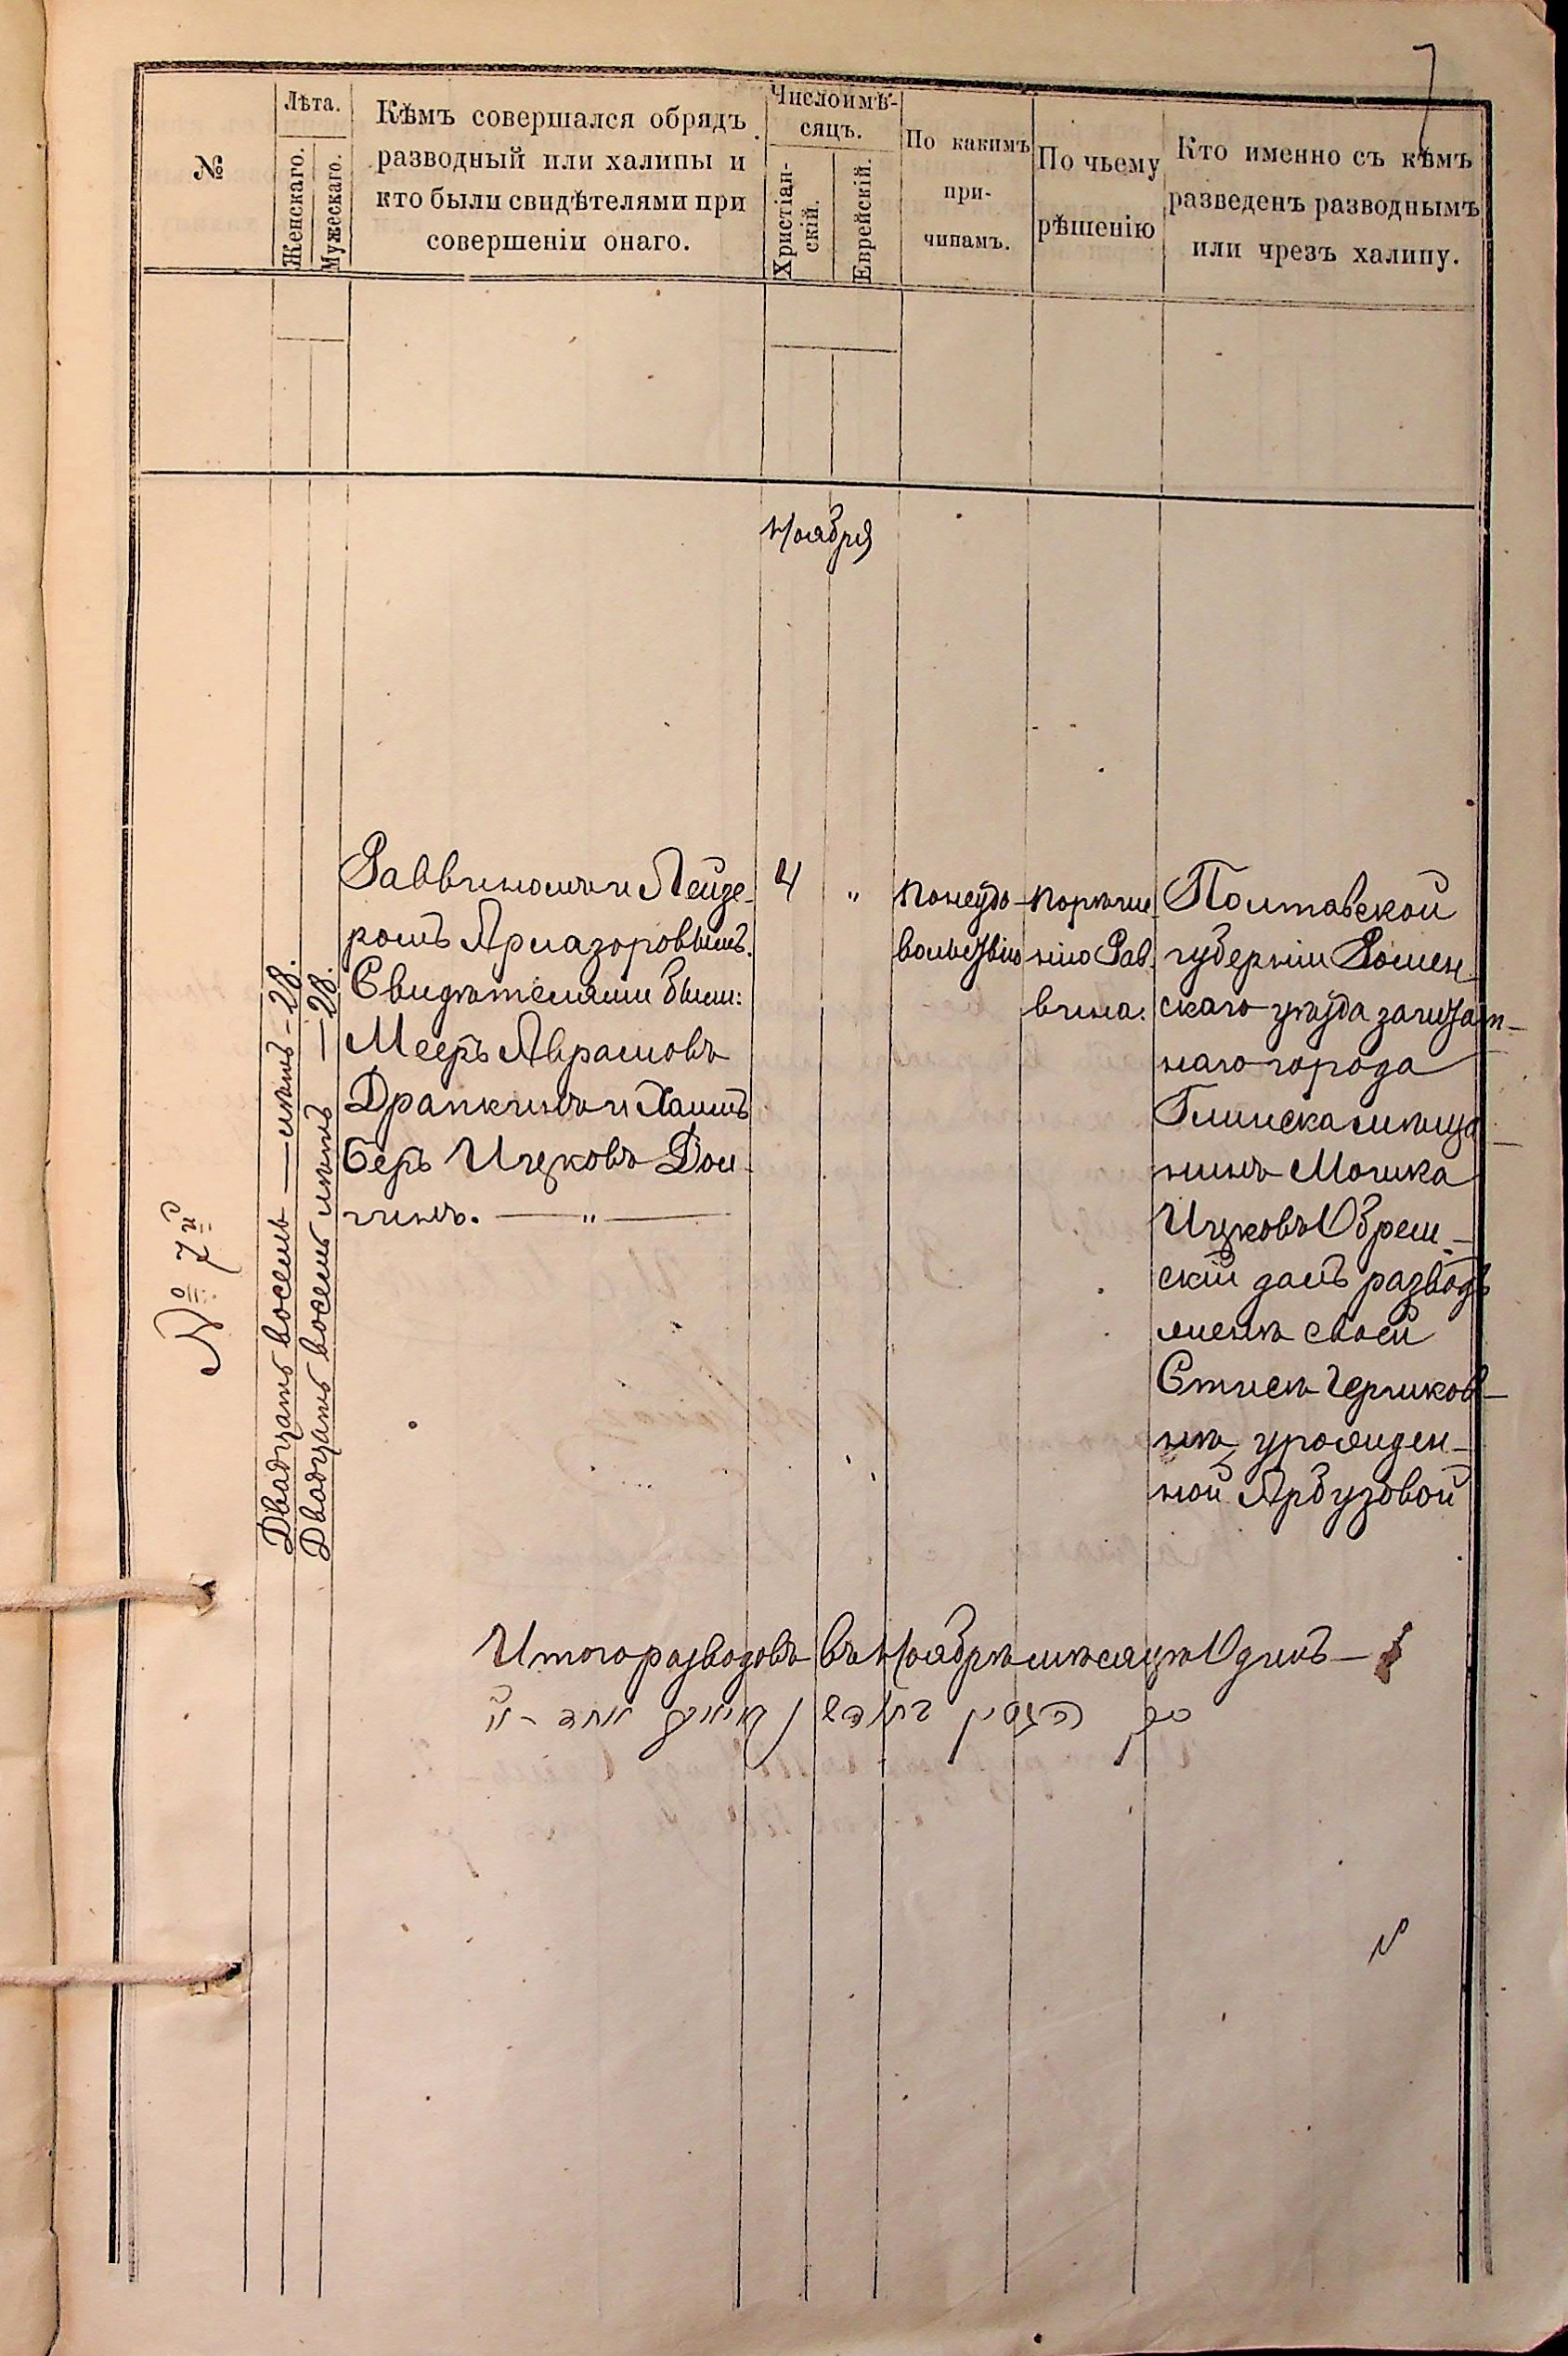 7
№
Лѣта.
Женскаго.
Мужескаго.
Кѣмъ совершался обрядъ
разводный или халицы и
кто были свидѣтелями при
совершеніи онаго.
Число и мѣ-
сяцъ.
Христіан-
скій.
Еврейскій.
По какимъ
при-
чинамъ.
По чьему
рѣшенію
Кто именно съ кѣмъ
разведенъ разводнымъ
или чрезъ халицу.
Ноября
№ 7й
Двадцать восемь — лѣтъ - 28.
Двадцать восемь лѣтъ — 28.
Раввиномъ и Лейзе-
ромъ
Свидѣтелями были:
Мееръ Аврамовъ
Драпкинъ и Хаимъ
Беръ Ицковъ Дол-
гинъ. — " —
4
"
По неудо-
вольствію
По рѣше-
нію Рав-
вина.
Полтавской
губерніи Ромен-
скаго уѣзда заштат-
наго города
Глинска мѣща-
нинъ Мошка
Ицковъ
скій далъ разводъ
женѣ своей
Берликов-
нѣ, урожден-
ной Арбузовой
Итого разводовъ въ Ноябрѣ мѣсяцѣ Одинъ — 1